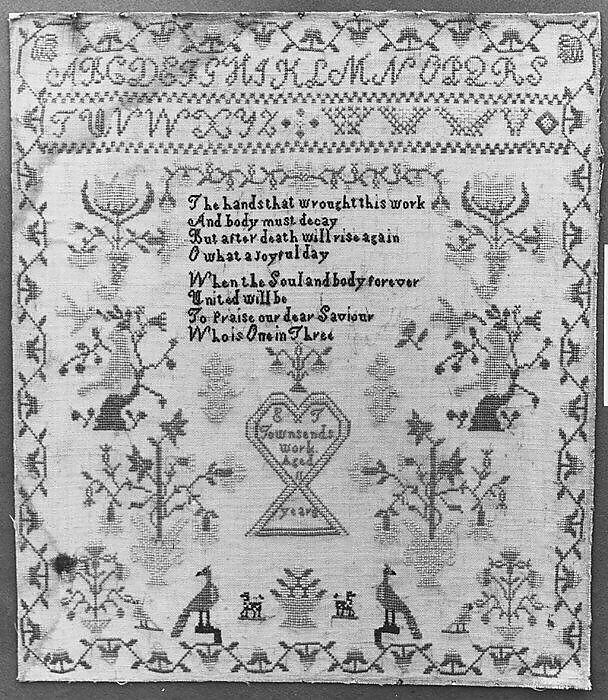 ABCDEFGHIKLMNOPQRS
TUVWXYZ
The hands that wrought this work
And body must decay
But after death will rise again
O what a joyful day
When the Soul and body forever
United will be
To Praise our dear Saviour
Who is One in Three
E T
Townsends
Work
Aged
11
years